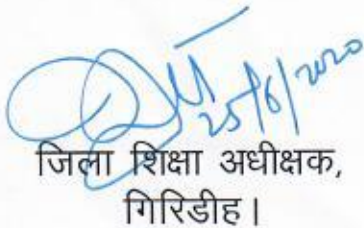 25/6/2020
जिला शिक्षा अधीक्षक,
गिरिडीह।